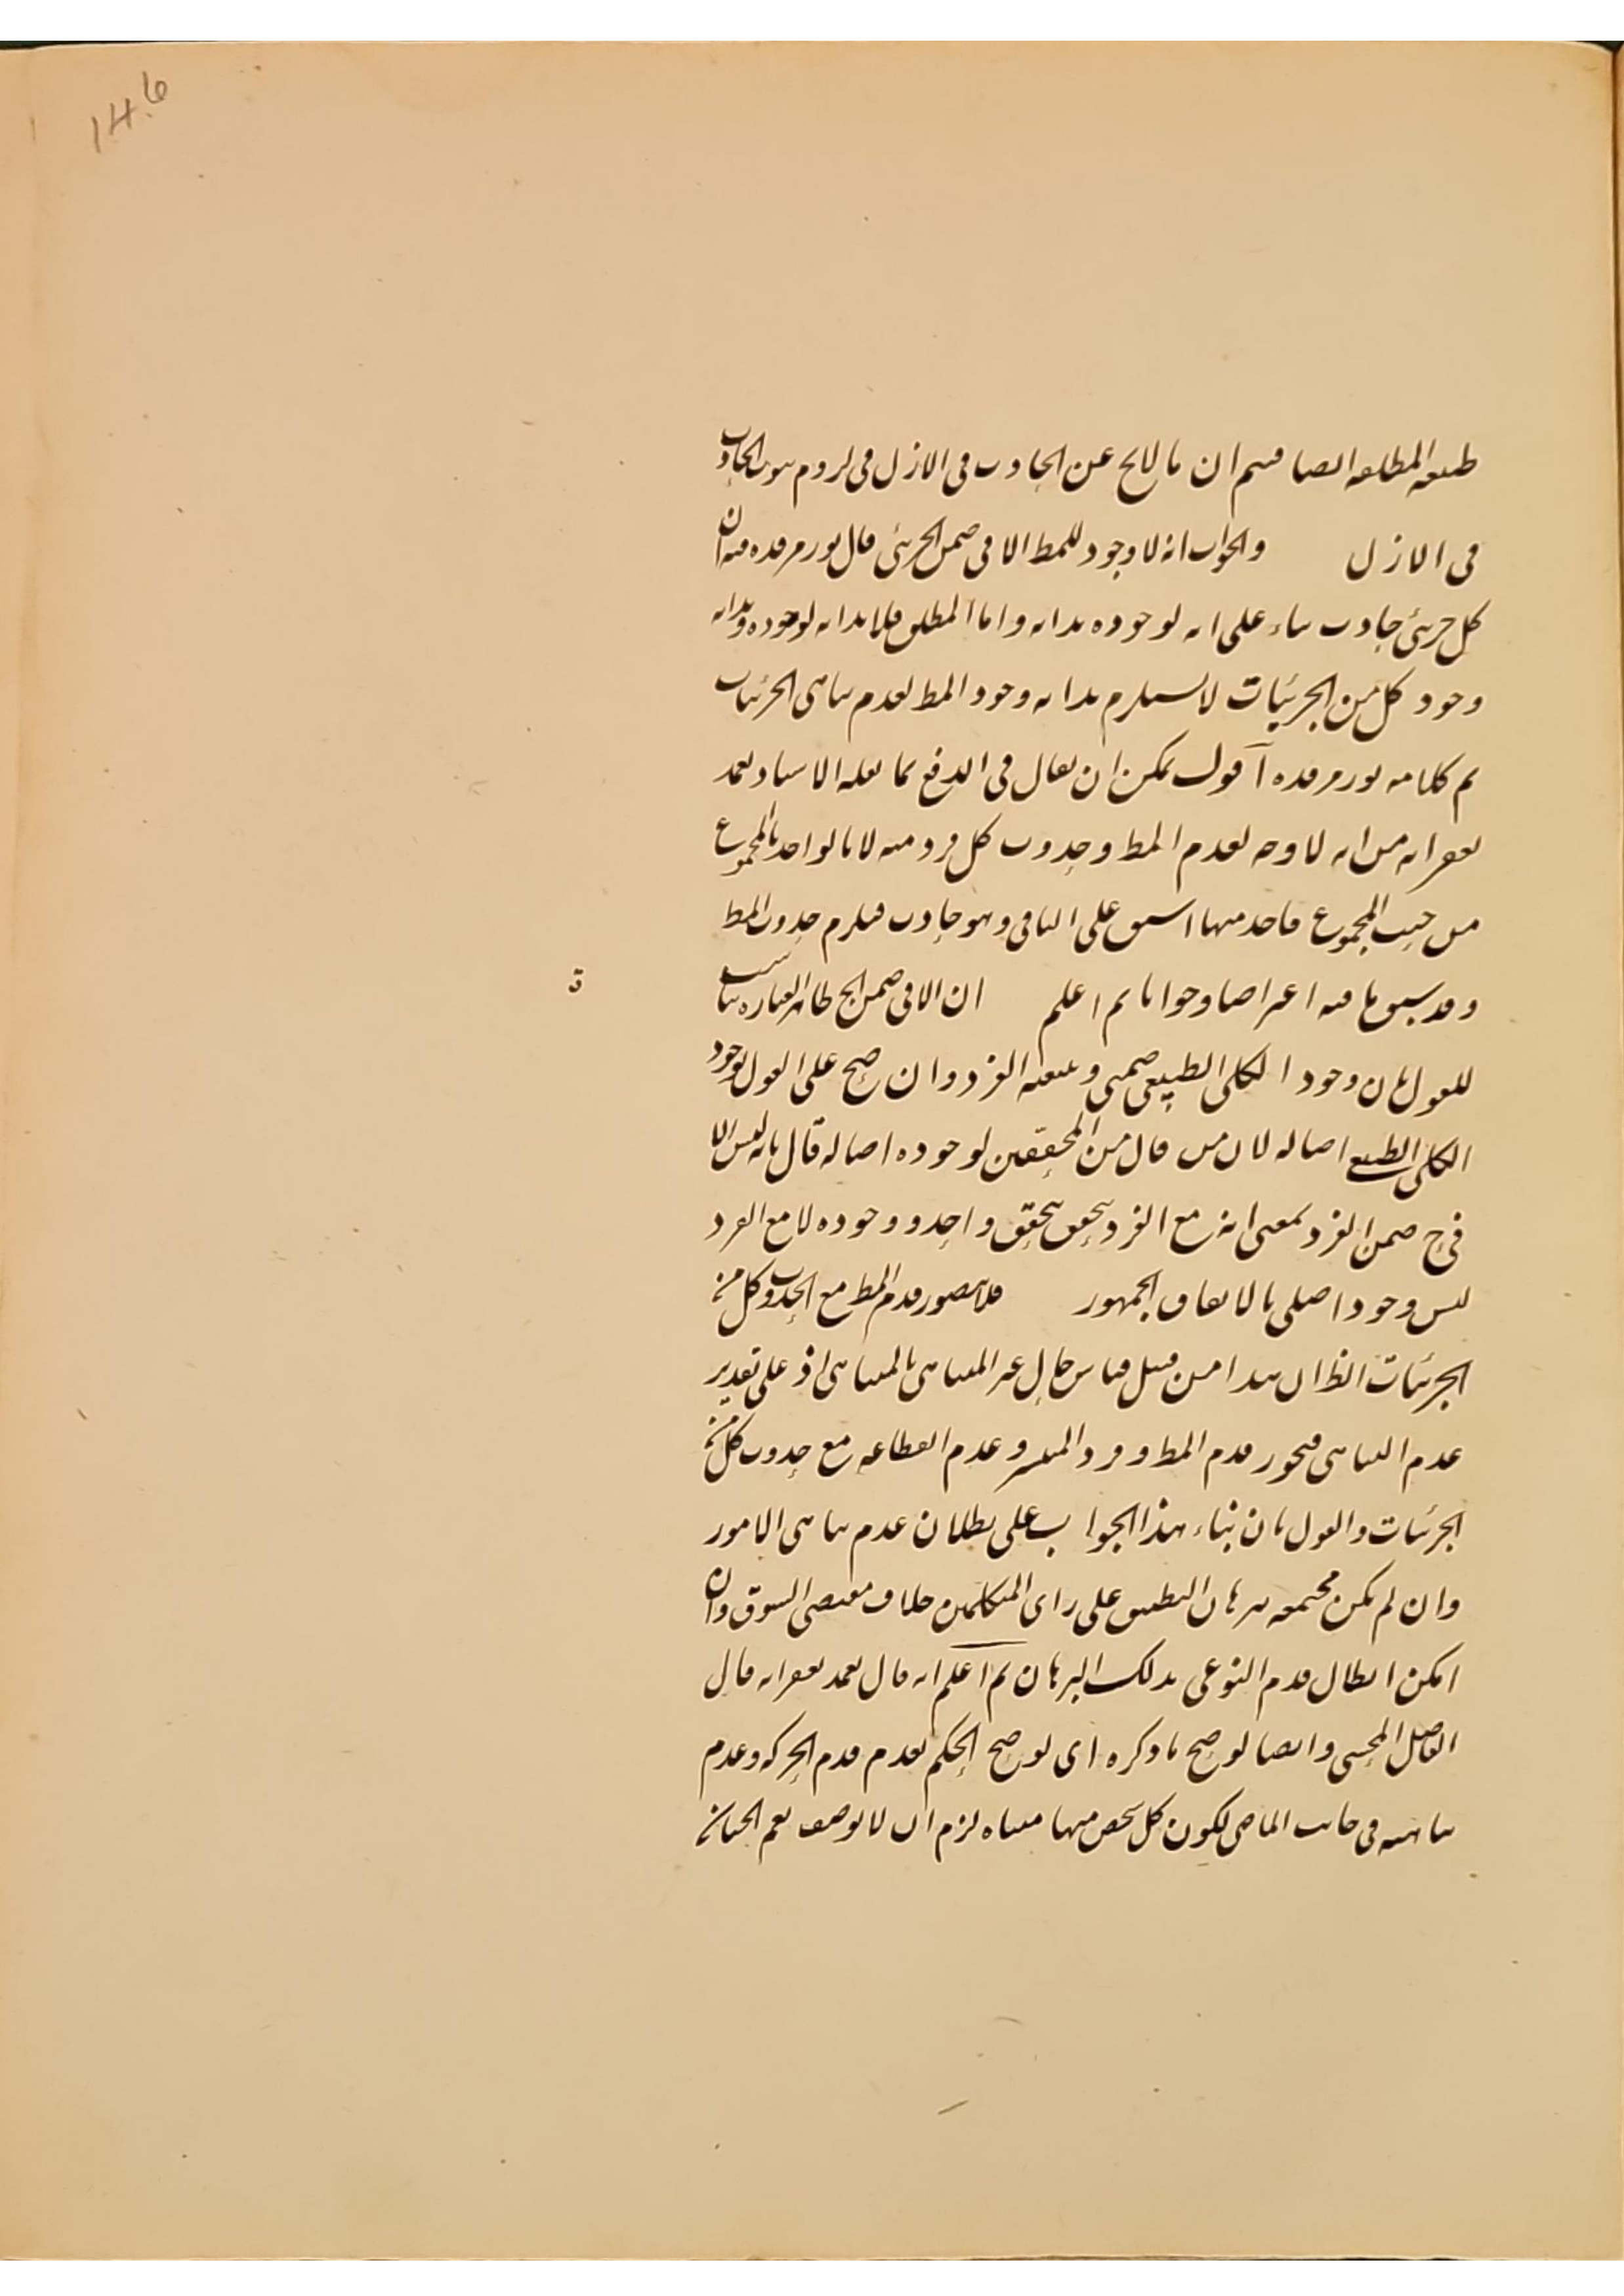 146
طبيعه المطلقه ايضا فيتم ان ما لا يخ عن الحادث فى الازل فى لزوم ثبوت الحادث
فى الازل والجواب انه لا وجود للمط الا فى ضمن الجزئى قال نور مرقده فيه ان
كل جزئى حادث بناء على ان لوجوده بدايه واما المطلق فلا بدايه لوجوده وبدايه
وجود كل من الجزئيات لا يستلزم بدايه وجود المط لعدم تناهى الجزئيات
تم كلامه نور مرقده اقول يمكن ان يقال فى الدفع بما نقله الاستاد تغمد
بغفرانه من انه لا وجه لقدم المط وحدوث كل فرد منه لانا لو اخذنا المجموع
من حيث المجموع فاحد منها اسبق على الباقى وهو حادث فيلزم حدوث المط
وقد سبق ما فيه اعتراضا وجوابا ثم اعلم ان الا فى ضمن الخ ظاهر العباره يناسب
ق
للقول بان وجود الكلى الطبيعى ضمنى وبتبعيه الفرد وان صح على القول بوجود
الكلى الطبيعى اصاله لان من قال من المحققين لوجوده اصاله قال بانه ليس الا
فى ضمن الفرد بمعنى انه مع الفرد يتحقق بتحقق واحد ووجوده لا مع الفرد
ليس وجودا صلى بالاتفاق الجمهور فلا يتصور قدم المط مع الحدوث كل من
الجزئيات الظ ان هذا من قبيل قياس حال غير المتناهى بالمتناهى اذ على تقدير
عدم التناهى فيجوز قدم المط وعدم انقطاعه مع حدوث كل من
الجزئيات والقول بان بناء هذا الجواب على بطلان عدم تناهى الامور
وان لم يكن مجتمعه ببرهان التطبيق على راى المتكلمين خلاف مقتضى السوق وان
امكن ابطال قدم النوعى بذلك البرهان ثم اعلم انه قال تغمد بغفرانه قال
الفاضل المحشى وايضا لو صح ما ذكره اى لو صح الحكم بعدم قدم الحركه وعدم
تناهيه فى جانب الماضى لكون كل شخص منها متناه لزم ان لا يوصف نعم الجنان